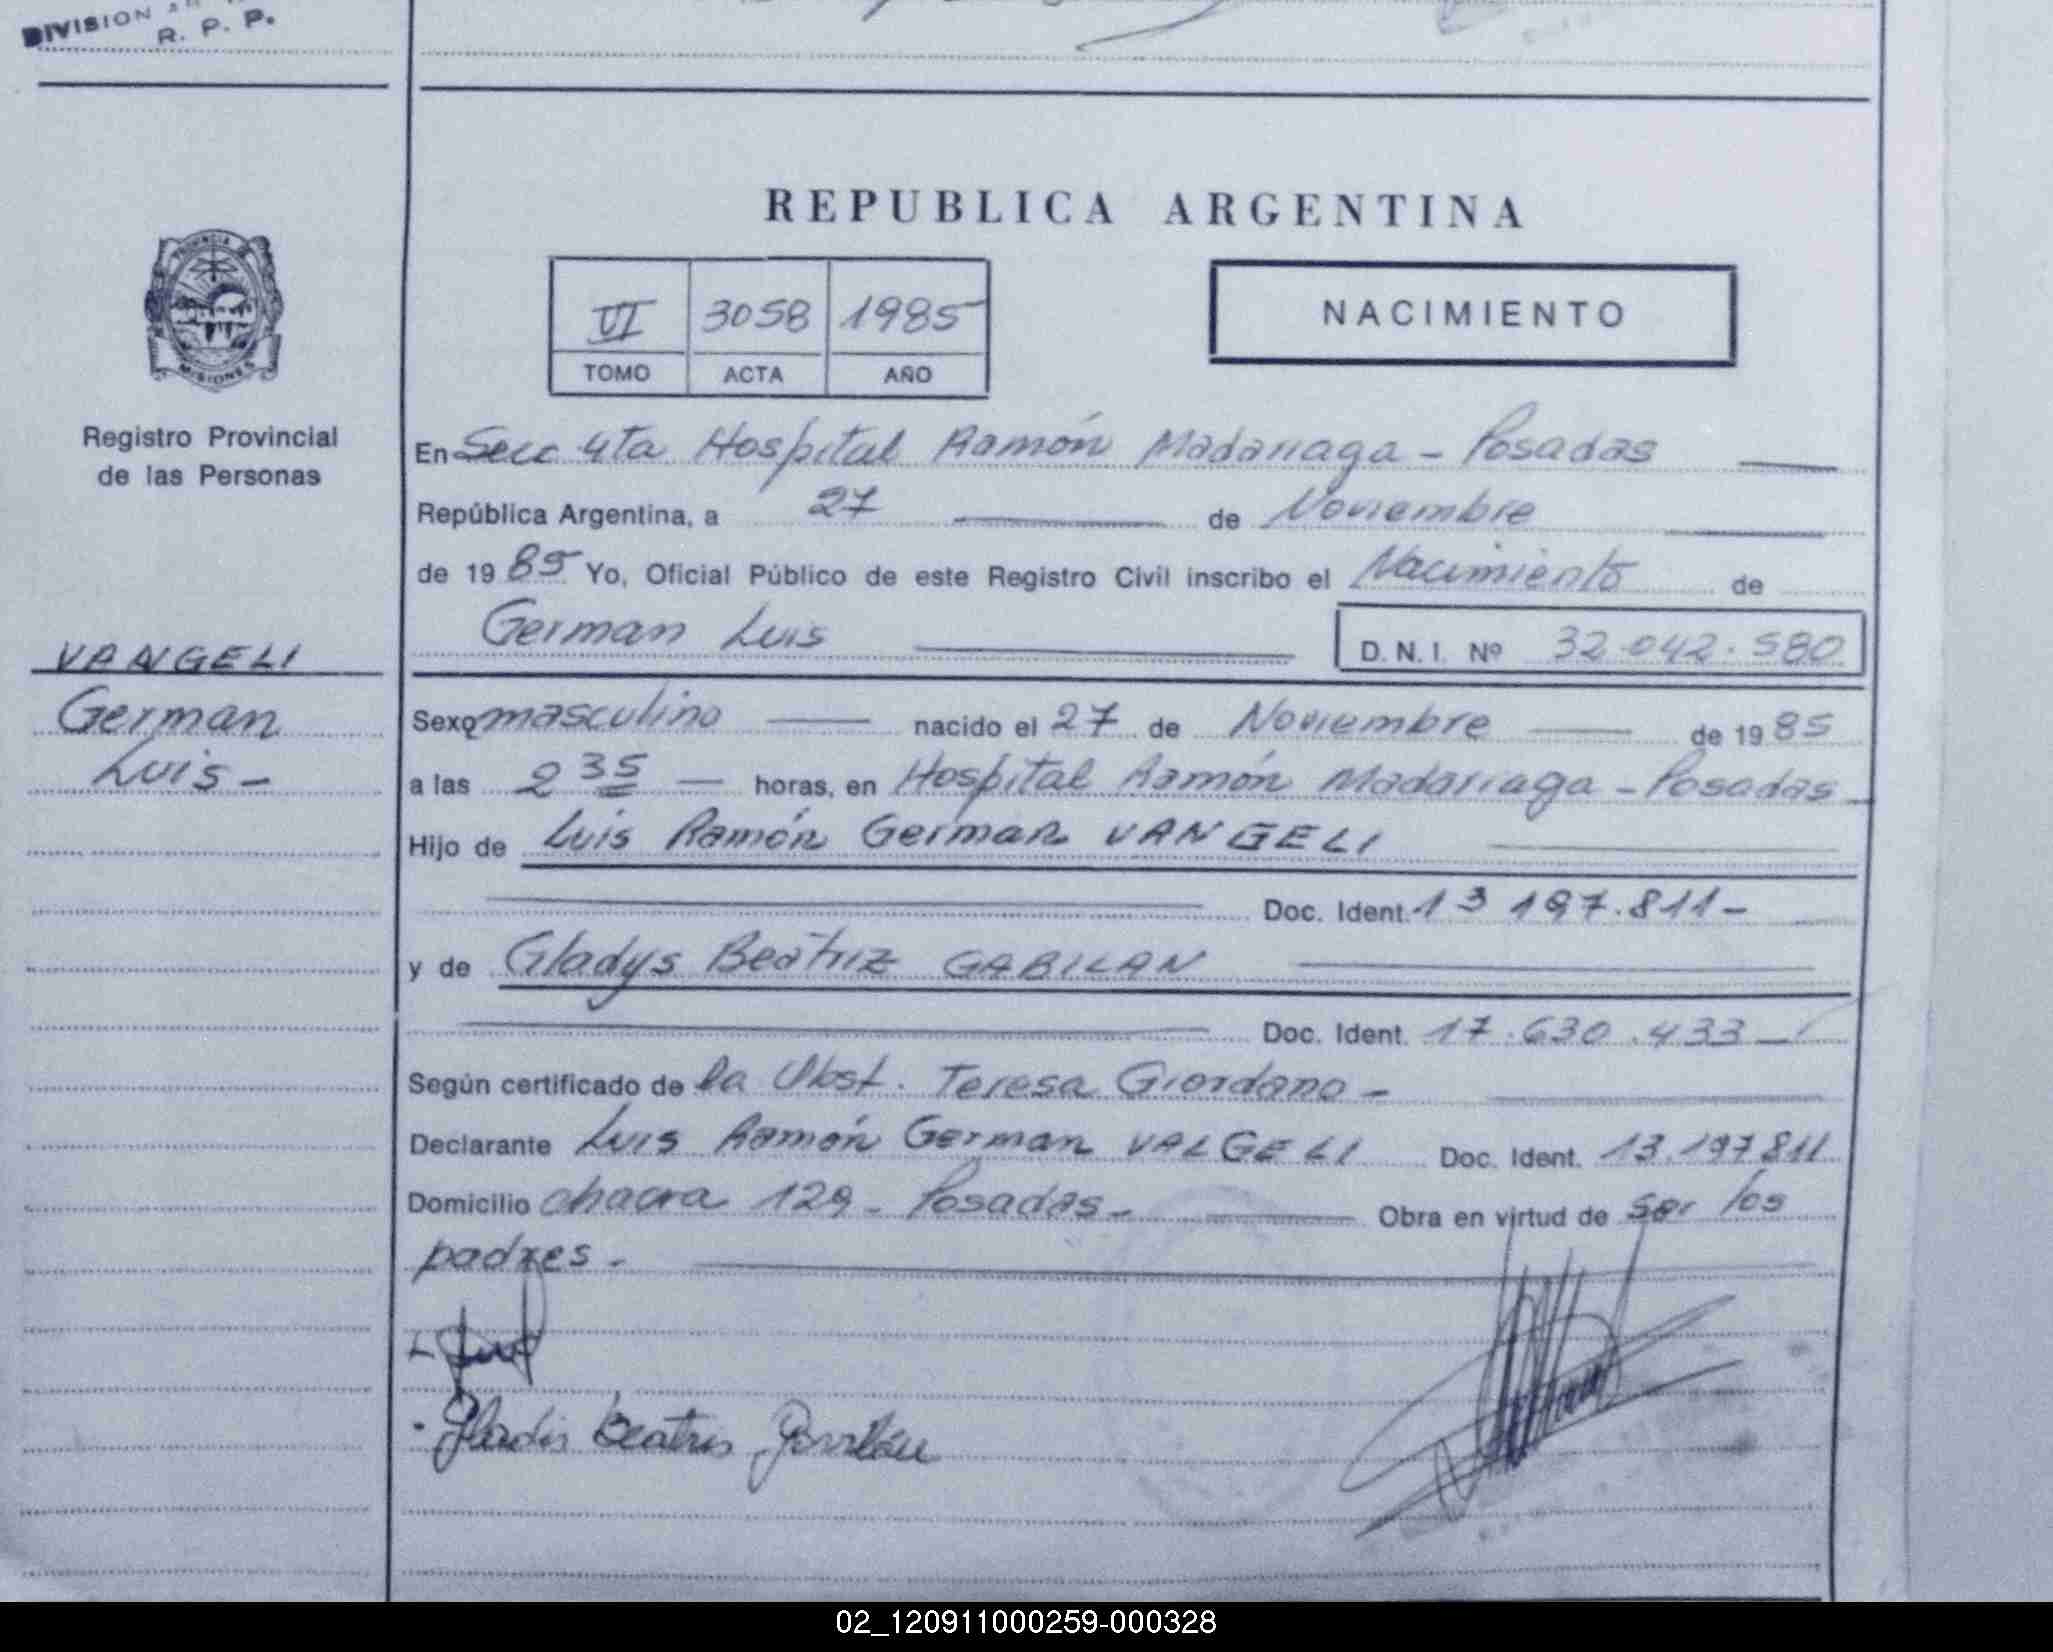 DIVISION
R. P. P.
REPUBLICA ARGENTINA
PROVINCIA DE
MISIONES
Registro Provincial
de las Personas
VI 3058 1985
TOMO ACTA AÑO
NACIMIENTO
En Secc 4ta Hospital Ramón Madariaga - Posadas
República Argentina, a 27 de Noviembre
de 1985 Yo, Oficial Público de este Registro Civil inscribo el Nacimiento de
German Luis
D. N. I. Nº 32.042.580
VANGELI
German
Luis -
Sexo masculino nacido el 27 de Noviembre de 1985
a las 2 35 horas, en Hospital Ramón Madariaga - Posadas
Hijo de Luis Ramón German VANGELI
Doc. Ident. 13 197.811 -
y de Gladys Beatriz GABILAN
Doc. Ident. 17.630.433
Según certificado de la Obst. Teresa Giordano -
Declarante Luis Ramón German VALGELI Doc. Ident. 13.197811
Domicilio chacra 129 - Posadas - Obra en virtud de ser los
padres -
Gladis Beatris
02_120911000259-000328